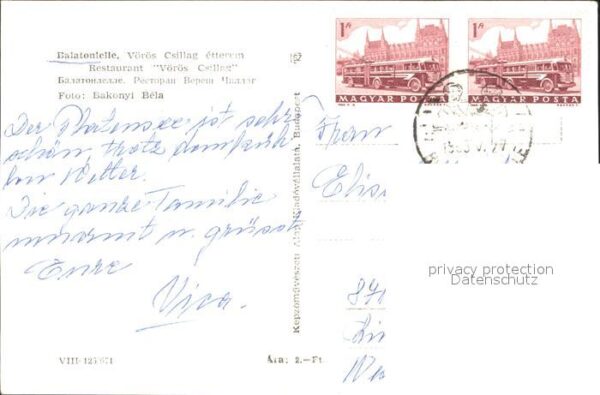 Balatonlelle, Vörös Csillag étterem
Restaurant "Vörös Csillag"
Балатонлелле. Ресторан Вереш Чиллаг
Foto: Bakonyi Béla
Der Plattensee ist sehr
schön, trotz
Wetter.
Die ganze Familie
u. grüsst
Eure
Vica.
VIII-125/671
Ára: 2.- Ft
Képzőművészeti Alap Kiadóvállalata, Budapest
1Ft
MAGYAR POSTA
1Ft
MAGYAR POSTA
Frau
Elis
privacy protection
Datenschutz